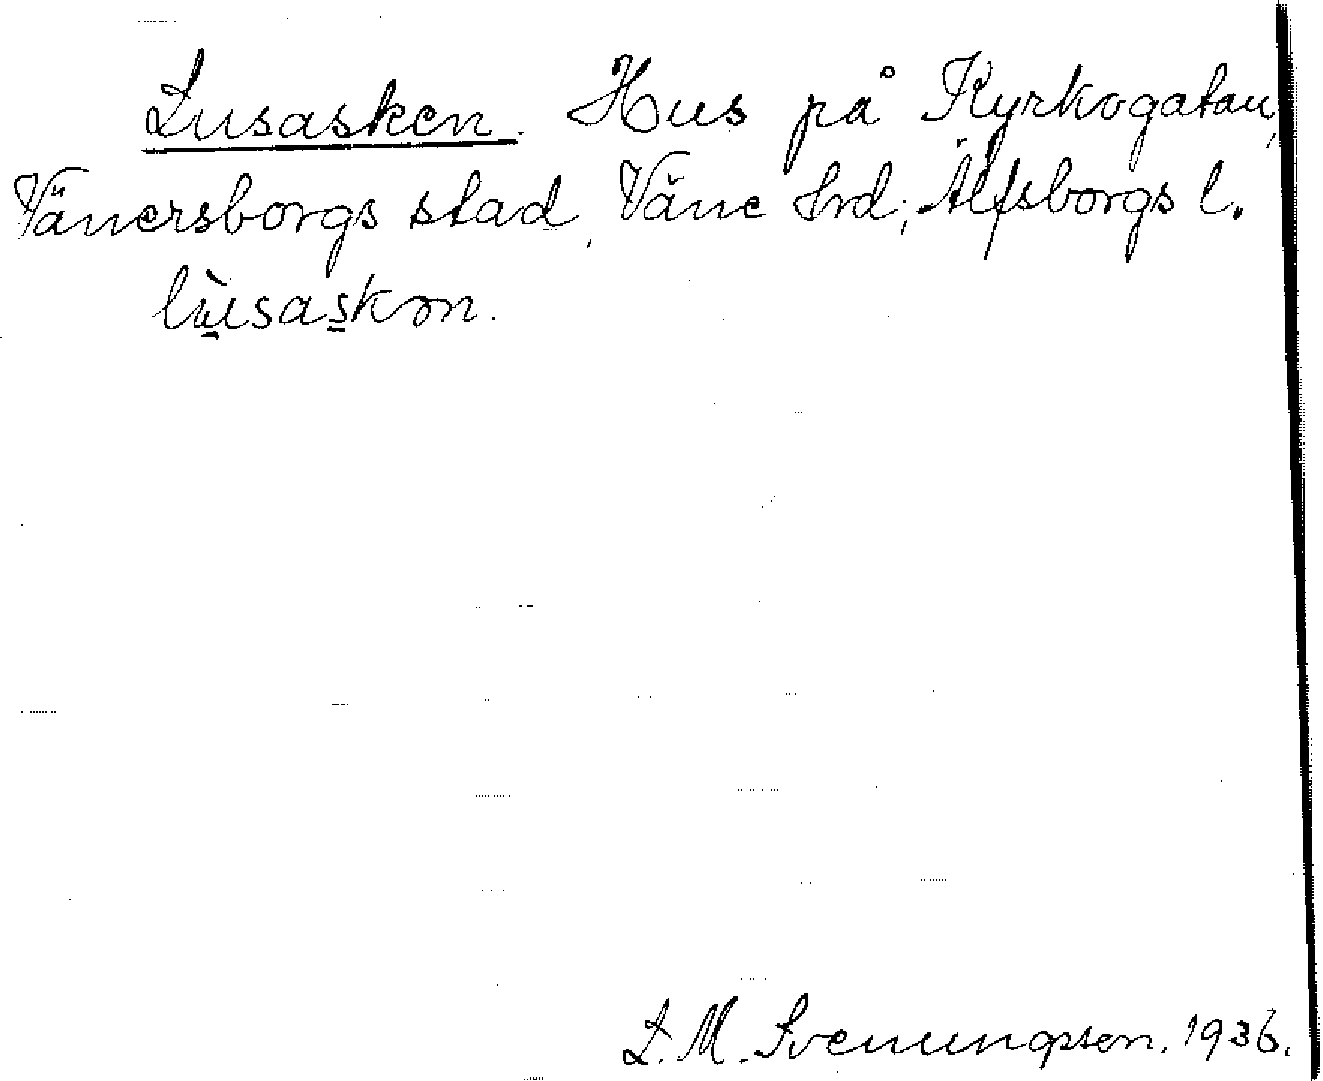 Lusasken. Hus på Kyrkogatan,
Vänersborgs stad, Väne hrd; Älfsborgs l.
lùsaskon.
L. M. Svenungsson. 1936.